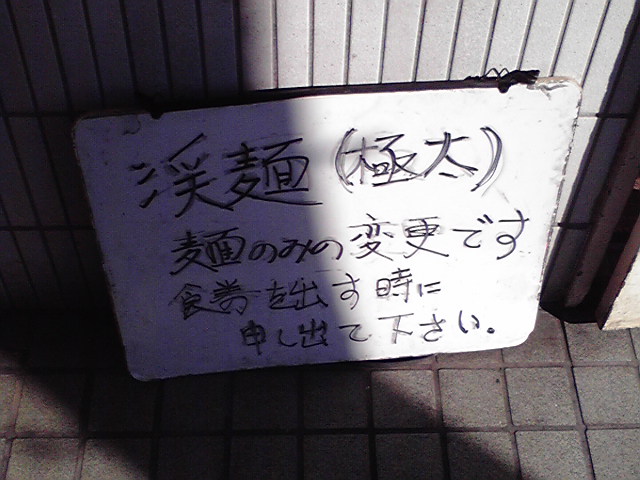 渓麺(極太)
麺のみの変更です
食券を出す時に
申し出て下さい。